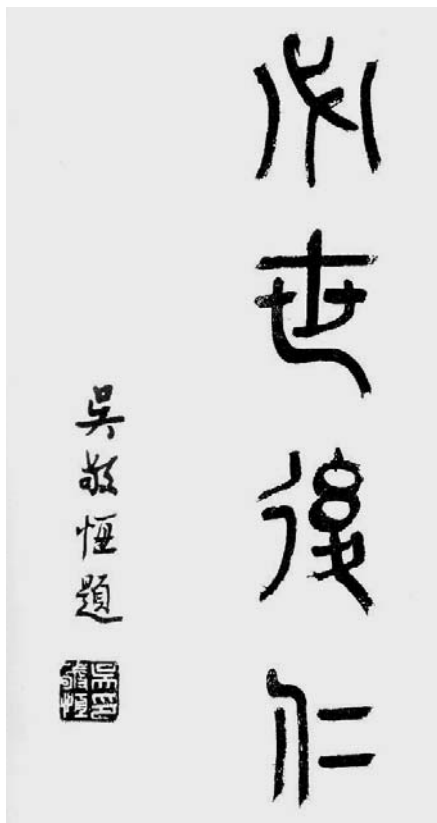 必世後仁
吳敬恆題
吳印敬恆